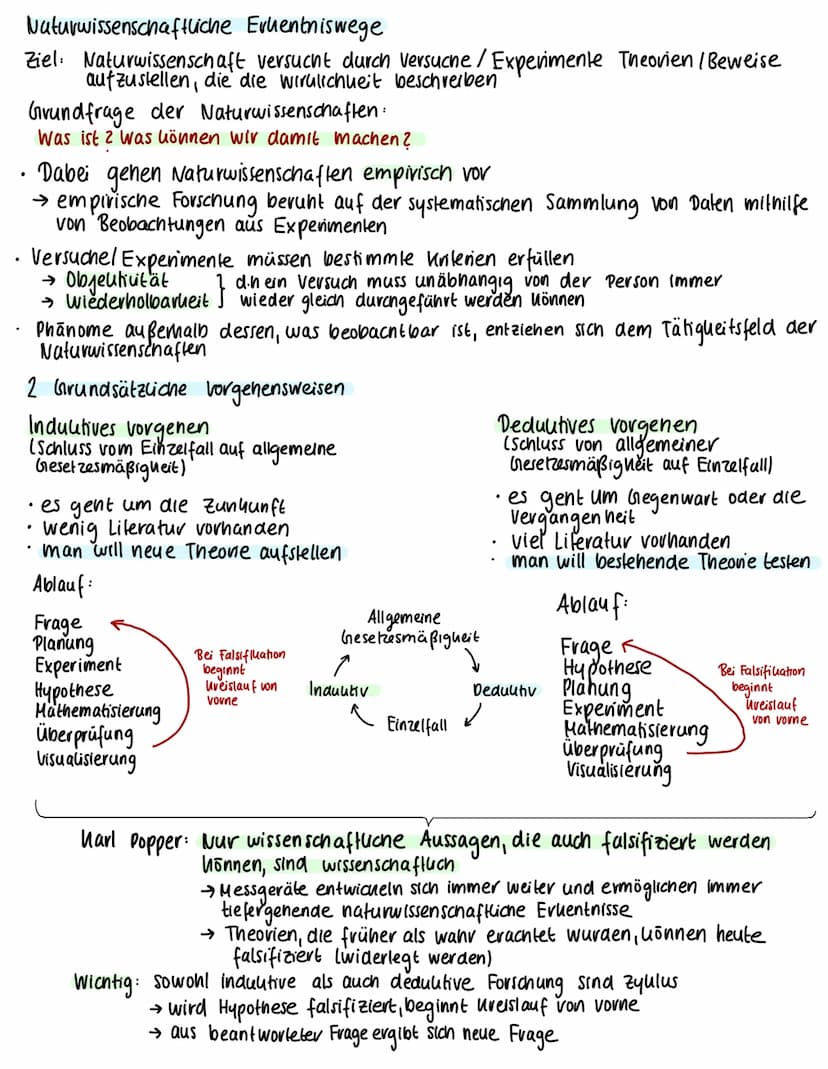 Naturwissenschaftliche Erkentniswege
Ziel: Naturwissenschaft versucht durch Versuche / Experimente Theorien / Beweise
aufzustellen, die die wirklichkeit beschreiben
Grundfrage der Naturwissenschaften:
Was ist? Was können wir damit machen?
· Dabei gehen Naturwissenschaften empirisch vor
→ empirische Forschung beruht auf der systematischen Sammlung von Daten mithilfe
von Beobachtungen aus Experimenten
· Versuche/Experimente müssen bestimmte Kriterien erfüllen
→ Objektivität } d.h ein Versuch muss unabhängig von der Person immer
→ Wiederholbarkeit } wieder gleich durchgeführt werden können
· Phänome außerhalb dessen, was beobachtbar ist, entziehen sich dem Tätigkeitsfeld der
Naturwissenschaften
2 Grundsätzliche Vorgehensweisen
Induktives vorgehen
(Schluss vom Einzelfall auf allgemeine
Gesetzesmäßigkeit)
· es geht um die Zunkunft
· wenig Literatur vorhanden
· man will neue Theorie aufstellen
Ablauf:
Frage
Planung
Experiment
Hypothese
Mathematisierung
Überprüfung
Visualisierung
Bei Falsifikation
beginnt
Kreislauf von
vorne
Allgemeine
Gesetzesmäßigkeit
Induktiv
Deduktiv
Einzelfall
Deduktives vorgehen
(Schluss von allgemeiner
Gesetzesmäßigkeit auf Einzelfall)
· es geht um Gegenwart oder die
Vergangenheit
· viel Literatur vorhanden
· man will bestehende Theorie testen
Ablauf:
Frage
Hypothese
Planung
Experiment
Mathematisierung
Überprüfung
Visualisierung
Bei Falsifikation
beginnt
Kreislauf
von vorne
Karl Popper: Nur wissenschaftliche Aussagen, die auch falsifiziert werden
können, sind wissenschaftlich
→ Messgeräte entwickeln sich immer weiter und ermöglichen immer
tiefergehende naturwissenschaftliche Erkentnisse
→ Theorien, die früher als wahr erachtet wurden, können heute
falsifiziert (widerlegt werden)
Wichtig: Sowohl induktive als auch deduktive Forschung sind Zyklus
→ wird Hypothese falsifiziert, beginnt Kreislauf von vorne
→ aus beantworteter Frage ergibt sich neue Frage